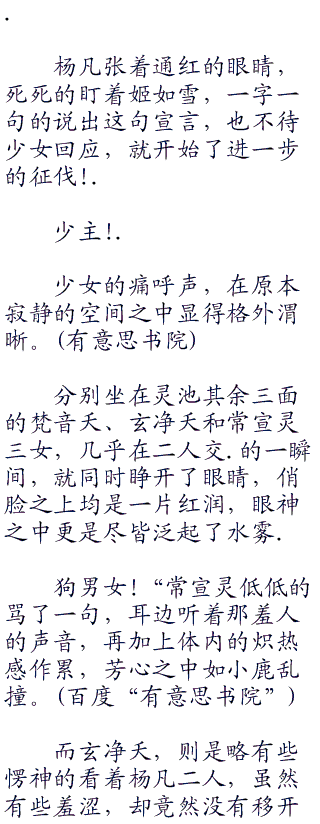 .
杨凡张着通红的眼睛，
死死的盯着姬如雪，一字一
句的说出这句宣言，也不待
少女回应，就开始了进一步
的征伐!.
少主!.
少女的痛呼声，在原本
寂静的空间之中显得格外渭
晰。(有意思书院)
分别坐在灵池其余三面
的梵音天、玄净天和常宣灵
三女，几乎在二人交.的一瞬
间，就同时睁开了眼睛，俏
脸之上均是一片红润，眼神
之中更是尽皆泛起了水雾.
狗男女!“常宣灵低低的
骂了一句，耳边听着那羞人
的声音，再加上体内的炽热
感作累，芳心之中如小鹿乱
撞。(百度“有意思书院”)
而玄净天，则是略有些
愣神的看着杨凡二人，虽然
有些羞涩，却竟然没有移开